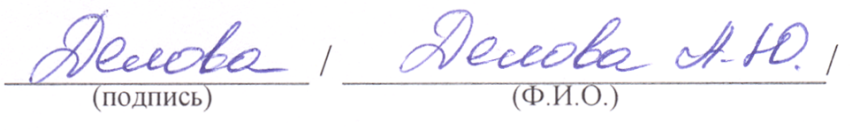 Делова / Делова А.Ю. /
(подпись) (Ф.И.О.)